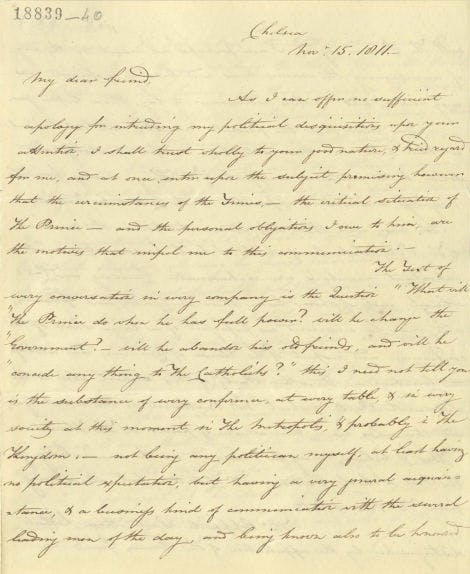 18839-40
Chelsea
Novr. 15. 1811.
My dear friend.
As I can offer no sufficient
apology for intruding my political disquisitions upon your
attention, I shall trust wholly to your good nature, & kind regard
for me, and at once enter upon the subject, premising however
that the circumstances of the Times, — the critical situation of
The Prince — and the personal obligations I owe to him, are
the motives that impel me to this communication. —
The Text of
every conversation in every company is the Question "What will
"The Prince do when he has full power? will he change the
"Government? — will he abandon his old friends, and will he
"concede any thing to The Catholicks?" this I need not tell you
is the substance of every conference, at every table, & in every
society at this moment in The Metropolis, & probably in The
Kingdom: — not being any politician myself, at least having
no political expectation, but having a very general acquain=
=tance, & a business kind of communication with the several
leading men of the day, and being known also to be honored